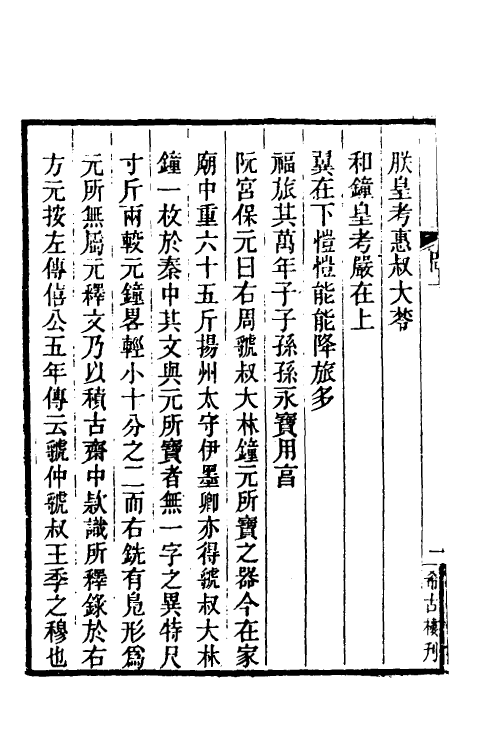 朕皇考惠叔大棽
和鐘皇考嚴在上
翼在下㦤㦤能能降旅多
福旅其萬年子子孫孫永寶用亯
阮宮保元曰右周虢叔大林鐘元所寶之器今在家
廟中重六十五斤揚州太守伊墨卿亦得虢叔大林
鐘一枚於秦中其文與元所寶者無一字之異特尺
寸斤兩較元鐘畧輕小十分之二而右銑有鳧形爲
元所無屬元釋文乃以積古齋中欵識所釋錄於右
方元按左傳僖公五年傳云虢仲虢叔王季之穆也
希古樓刊